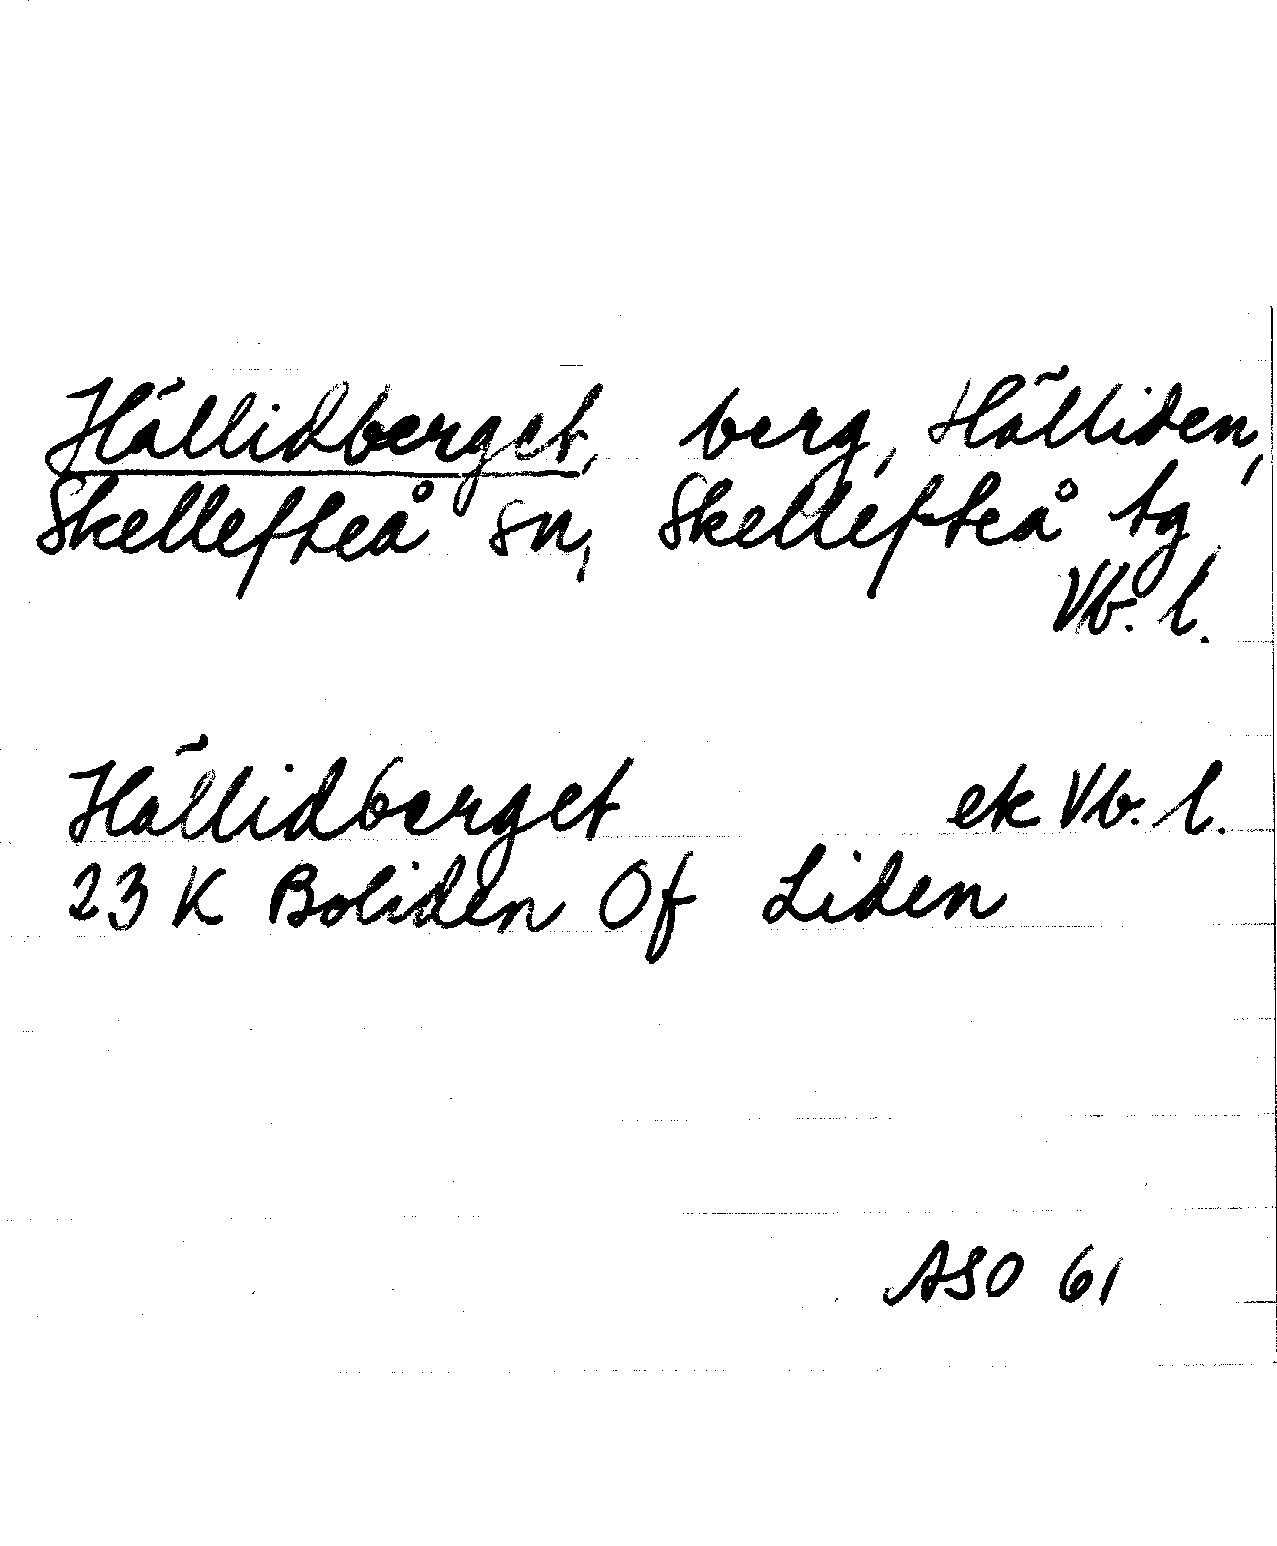 Hällidberget, berg, Hälliden,
Skellefteå sn, Skellefteå tg
Vb. l.
Hällidberget ek Vb. l.
23 K Boliden Of Liden
ASO 61